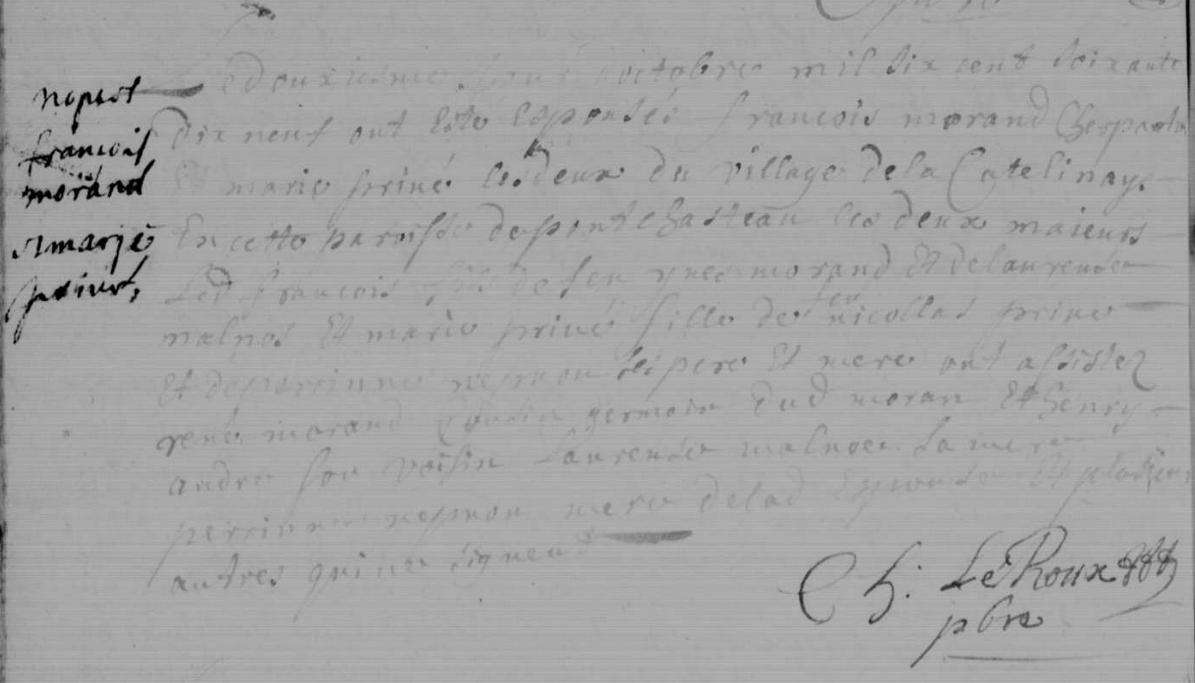 nopest
francois
morand
marie
Le deuxieme jour octobre mil six cent soixante
dix neuf ont Esté Espousés francois morand
Et marie priné les deux du village de la Catelinaye
En cette paroisse de pontchasteau les deux maieurs
Led francois fils de feu yues morand Et de laurence
malnoe Et marie priné fille de feu nicollas priné
Et de perrinne mesmon ses pere Et mere ont assistez
rené morand Cousin germain dud moran Et henry
andre son voisin Laurence malnoe sa mere
perrinne mesmon mere de lad Epouse Et plusieurs
autres qui ne signent
Ch: Le Roux
pbre